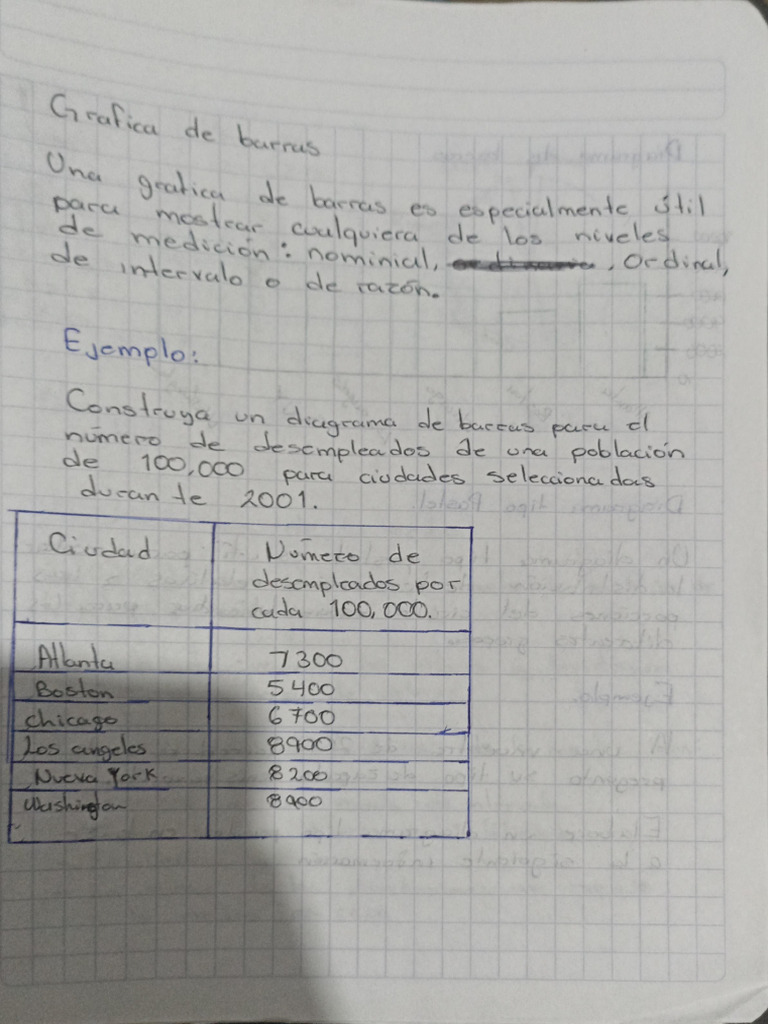 Grafica de barras
Una grafica de barras es especialmente útil
para mostrar cualquiera de los niveles
de medición: nominial, , Ordinal,
de intervalo o de razón.
Ejemplo:
Construya un diagrama de barras para el
número de desempleados de una población
de 100,000 para ciudades seleccionadas
durante 2001.
Ciudad
Número de
desempleados por
cada 100,000.
Atlanta 7300
Boston 5400
chicago 6700
Los angeles 8900
Nueva York 8200
Washington 8900